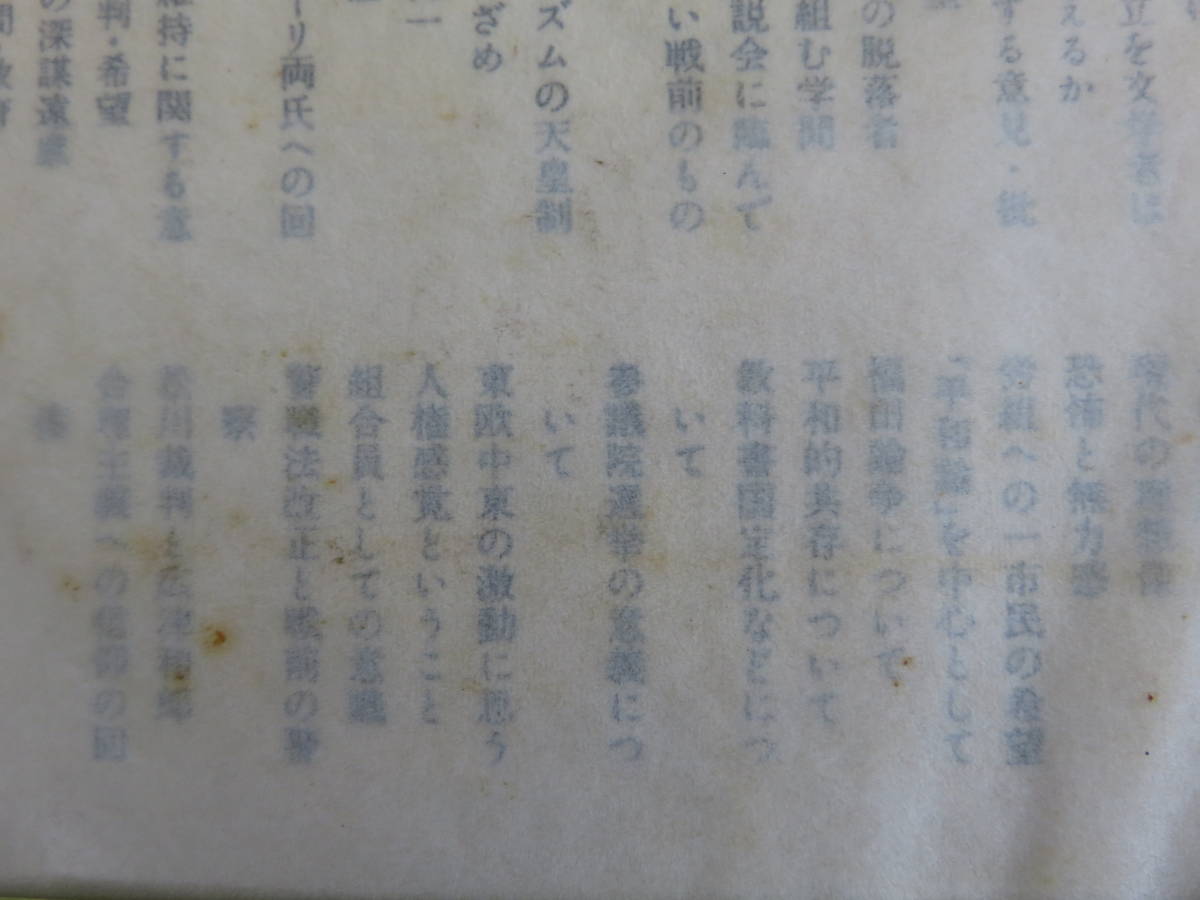 立を文学者は
えるか
する意見・批
の脱落者
組む学問
説会に臨んで
い戦前のもの
ズムの天皇制
ざめ
ーリ両氏への回
維持に関する意
判・希望
の深謀遠慮
恐怖と無力感
労組への一市民の希望
「平和論」を中心として
福田論争について
平和的共存について
教科書国定化などにつ
いて
参議院選挙の意義につ
いて
東欧中東の激動に思う
人権感覚ということ
組合員としての意識
警職法改正と戦前の警
察
松川裁判と広津和郎
合理主義への信仰の回